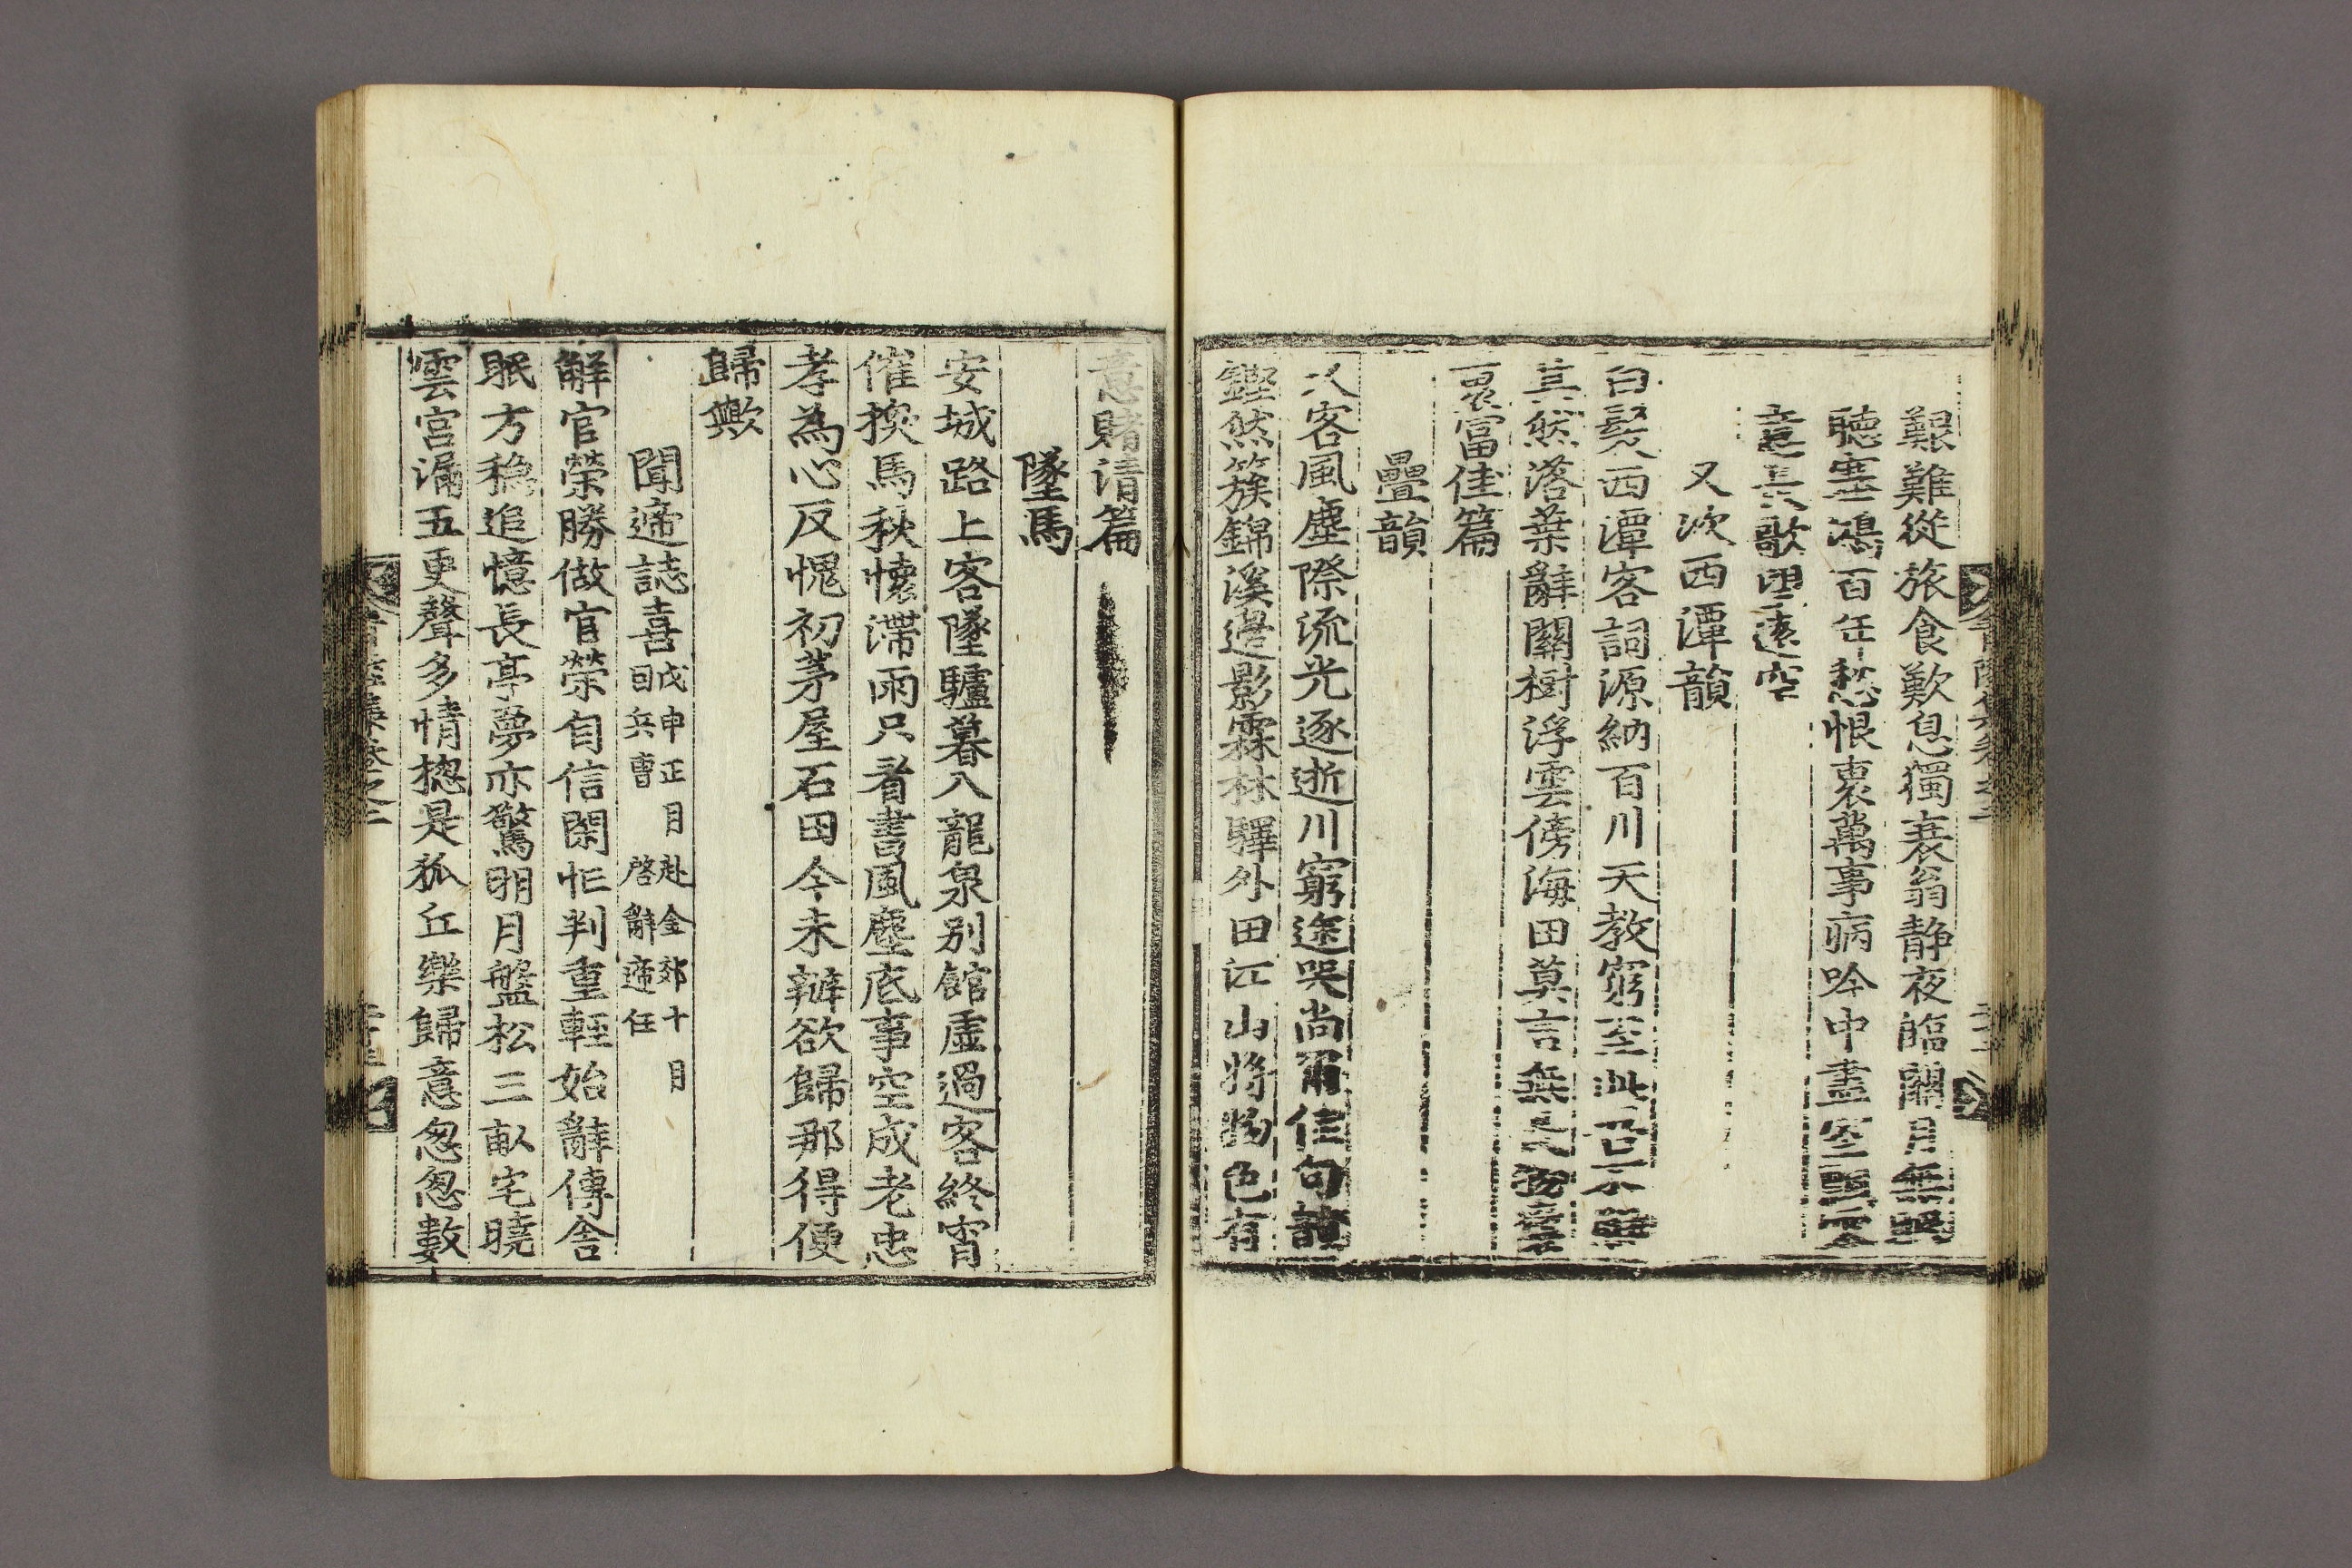 艱難從旅食歎息獨衰翁静夜臨關月無眠
聽塞鴻百年愁恨裏萬事病吟中盡室
意長歌望遠空
又次西潭韻
白髮西潭客詞源納百川天教窮至此吾不
其然落葉辭關樹浮雲傍海田莫言無
裏富佳篇
疊韻
久客風塵際流光逐逝川窮途哭尚爾佳句讀
鏗然簇錦溪邊影霖林驛外田江山將物色有
意賭清篇
墜馬
安城路上客墜驢暮入龍泉別館虛過客終宵
催換馬秋懷滯雨只看書風塵底事空成老忠
孝為心反愧初茅屋石田今未辦欲歸那得便
歸歟
聞遞誌喜戊申正月赴金郊十月
因兵曹 啓辭遞任
解官榮勝做官榮自信閑忙判重輕始辭傳舍
眠方穩追憶長亭夢亦驚明月盤松三畝宅曉
雲宮漏五更聲多情揔是狐丘樂歸意怱怱數